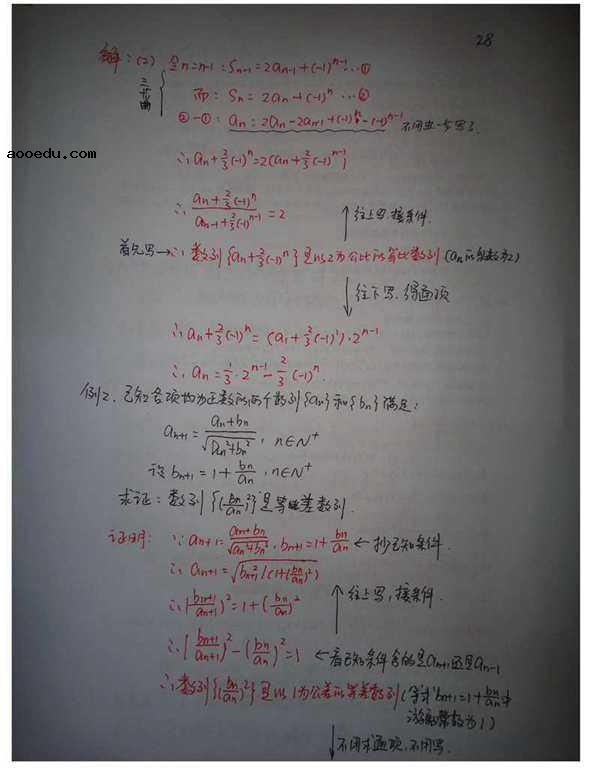 28
解：(2) 令n=n-1：Sn-1=2an-1+(-1)^(n-1) …①
三步曲
而：Sn=2an+(-1)^n …②
②-①：an=2an-2an-1+(-1)^n-(-1)^(n-1) 不用五一步写了.
aooedu.com
∴ an+2/3(-1)^n=2(an+2/3(-1)^(n-1))
∴ (an+2/3(-1)^n)/(an-1+2/3(-1)^(n-1))=2
↑往上写，接条件.
首先写→∴数列{an+2/3(-1)^n}是以2为公比的等比数列(an的系数为2)
↓往下写，得通项
∴ an+2/3(-1)^n=(a1+2/3(-1)^1)·2^(n-1)
∴ an=1/3·2^(n-1)-2/3(-1)^n.
例2. 已知各项均为正数的两个数列{an}和{bn}满足：
an+1=(an+bn)/√(an²+bn²)，n∈N+
设bn+1=1+bn/an，n∈N+
求证：数列{(bn/an)²}是等差数列.
证明：∵an+1=(an+bn)/√(an²+bn²)，bn+1=1+bn/an ←抄已知条件.
∴ an+1=√(bn+1²/(1+(bn/an)²))
∴(bn+1/an+1)²=1+(bn/an)²
↑往上写，接条件.
∴(bn+1/an+1)²-(bn/an)²=1 ←看已知条件含的是an+1还是an-1
∴数列{(bn/an)²}是以1为公差的等差数列(等式bn+1=1+bn/an中
常数为1)
↓不用求通项，不用写.